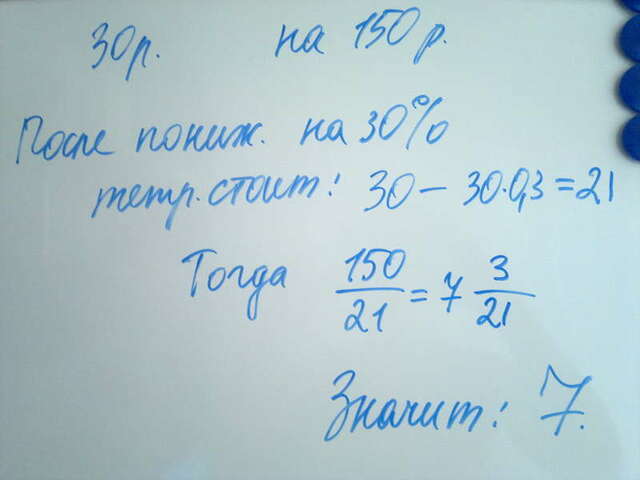 30р. на 150р.
После пониж. на 30%
тетр. стоит: 30 - 30·0,3 = 21
Тогда 150/21 = 7 3/21
Значит: 7.